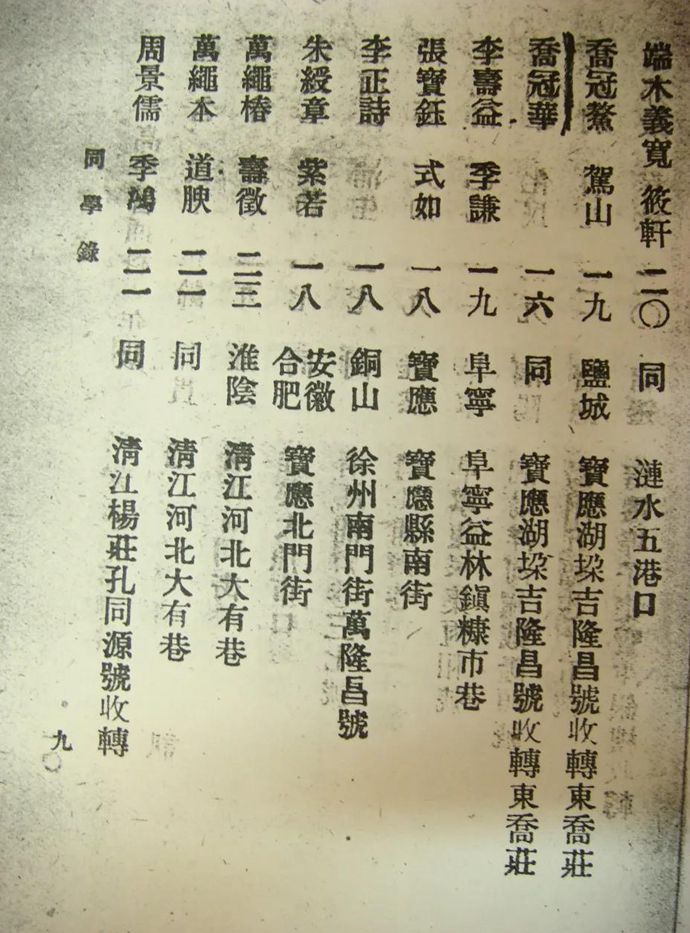 端木義寬 筱軒 二〇 同 漣水五港口
喬冠鰲 駕山 一九 鹽城 寶應湖垛吉隆昌號收轉東喬莊
喬冠華 一六 同 寶應湖垛吉隆昌號收轉東喬莊
李壽益 季謙 一九 阜寧 阜寧益林鎮糠市巷
張寶鈺 式如 一八 寶應 寶應縣南街
李正詩 一八 銅山 徐州南門街萬隆昌號
朱綬章 紫若 一八 安徽合肥 寶應北門街
萬繩椿 壽徵 二三 淮陰 清江河北大有巷
萬繩本 道腴 二一 同 清江河北大有巷
周景儒 季鴻 二一 同 清江楊莊孔同源號收轉
同學錄
九〇